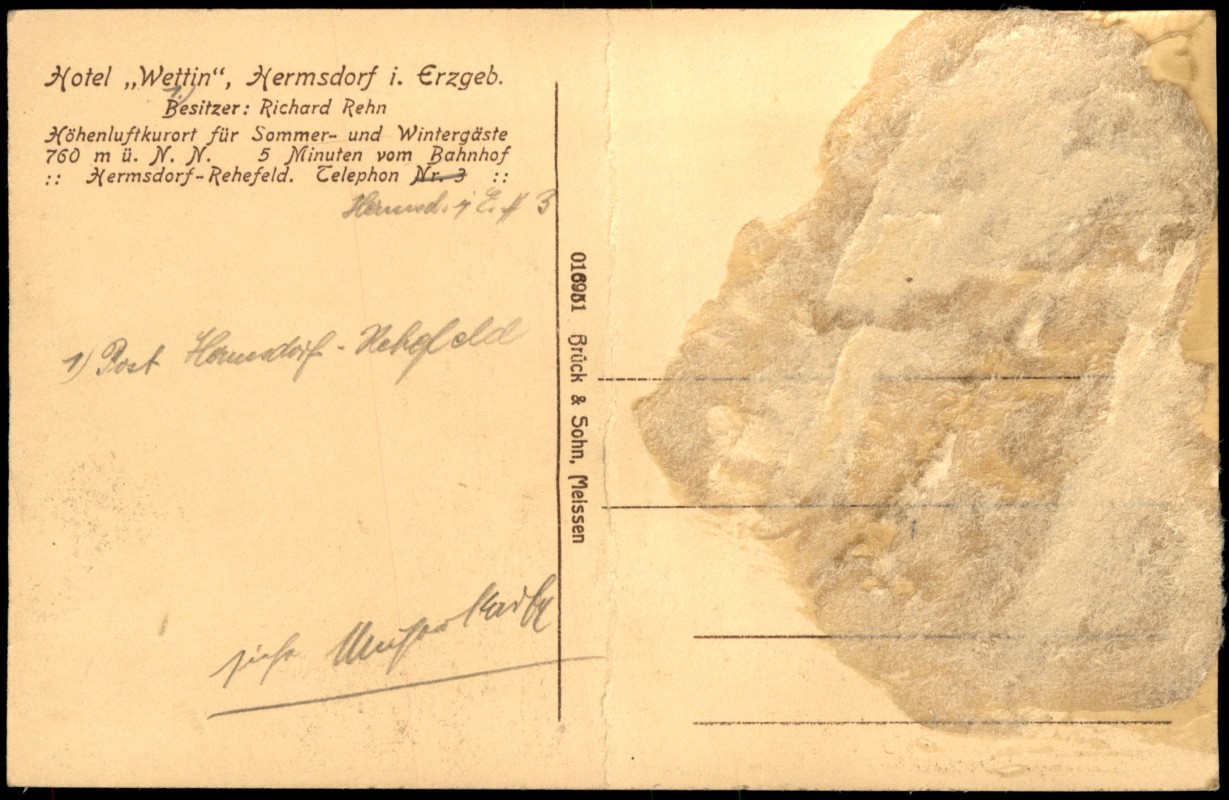 Hotel „Wettin“, Hermsdorf i. Erzgeb.
1.)
Besitzer: Richard Rehn
Höhenluftkurort für Sommer- und Wintergäste
760 m ü. N. N. 5 Minuten vom Bahnhof
:: Hermsdorf-Rehefeld. Telephon Nr. 3 ::
Hermsd. i. E. # 3
1) Post Hermsdorf - Rehefeld
siehe Musterkarte
016951 Brück & Sohn, Meissen